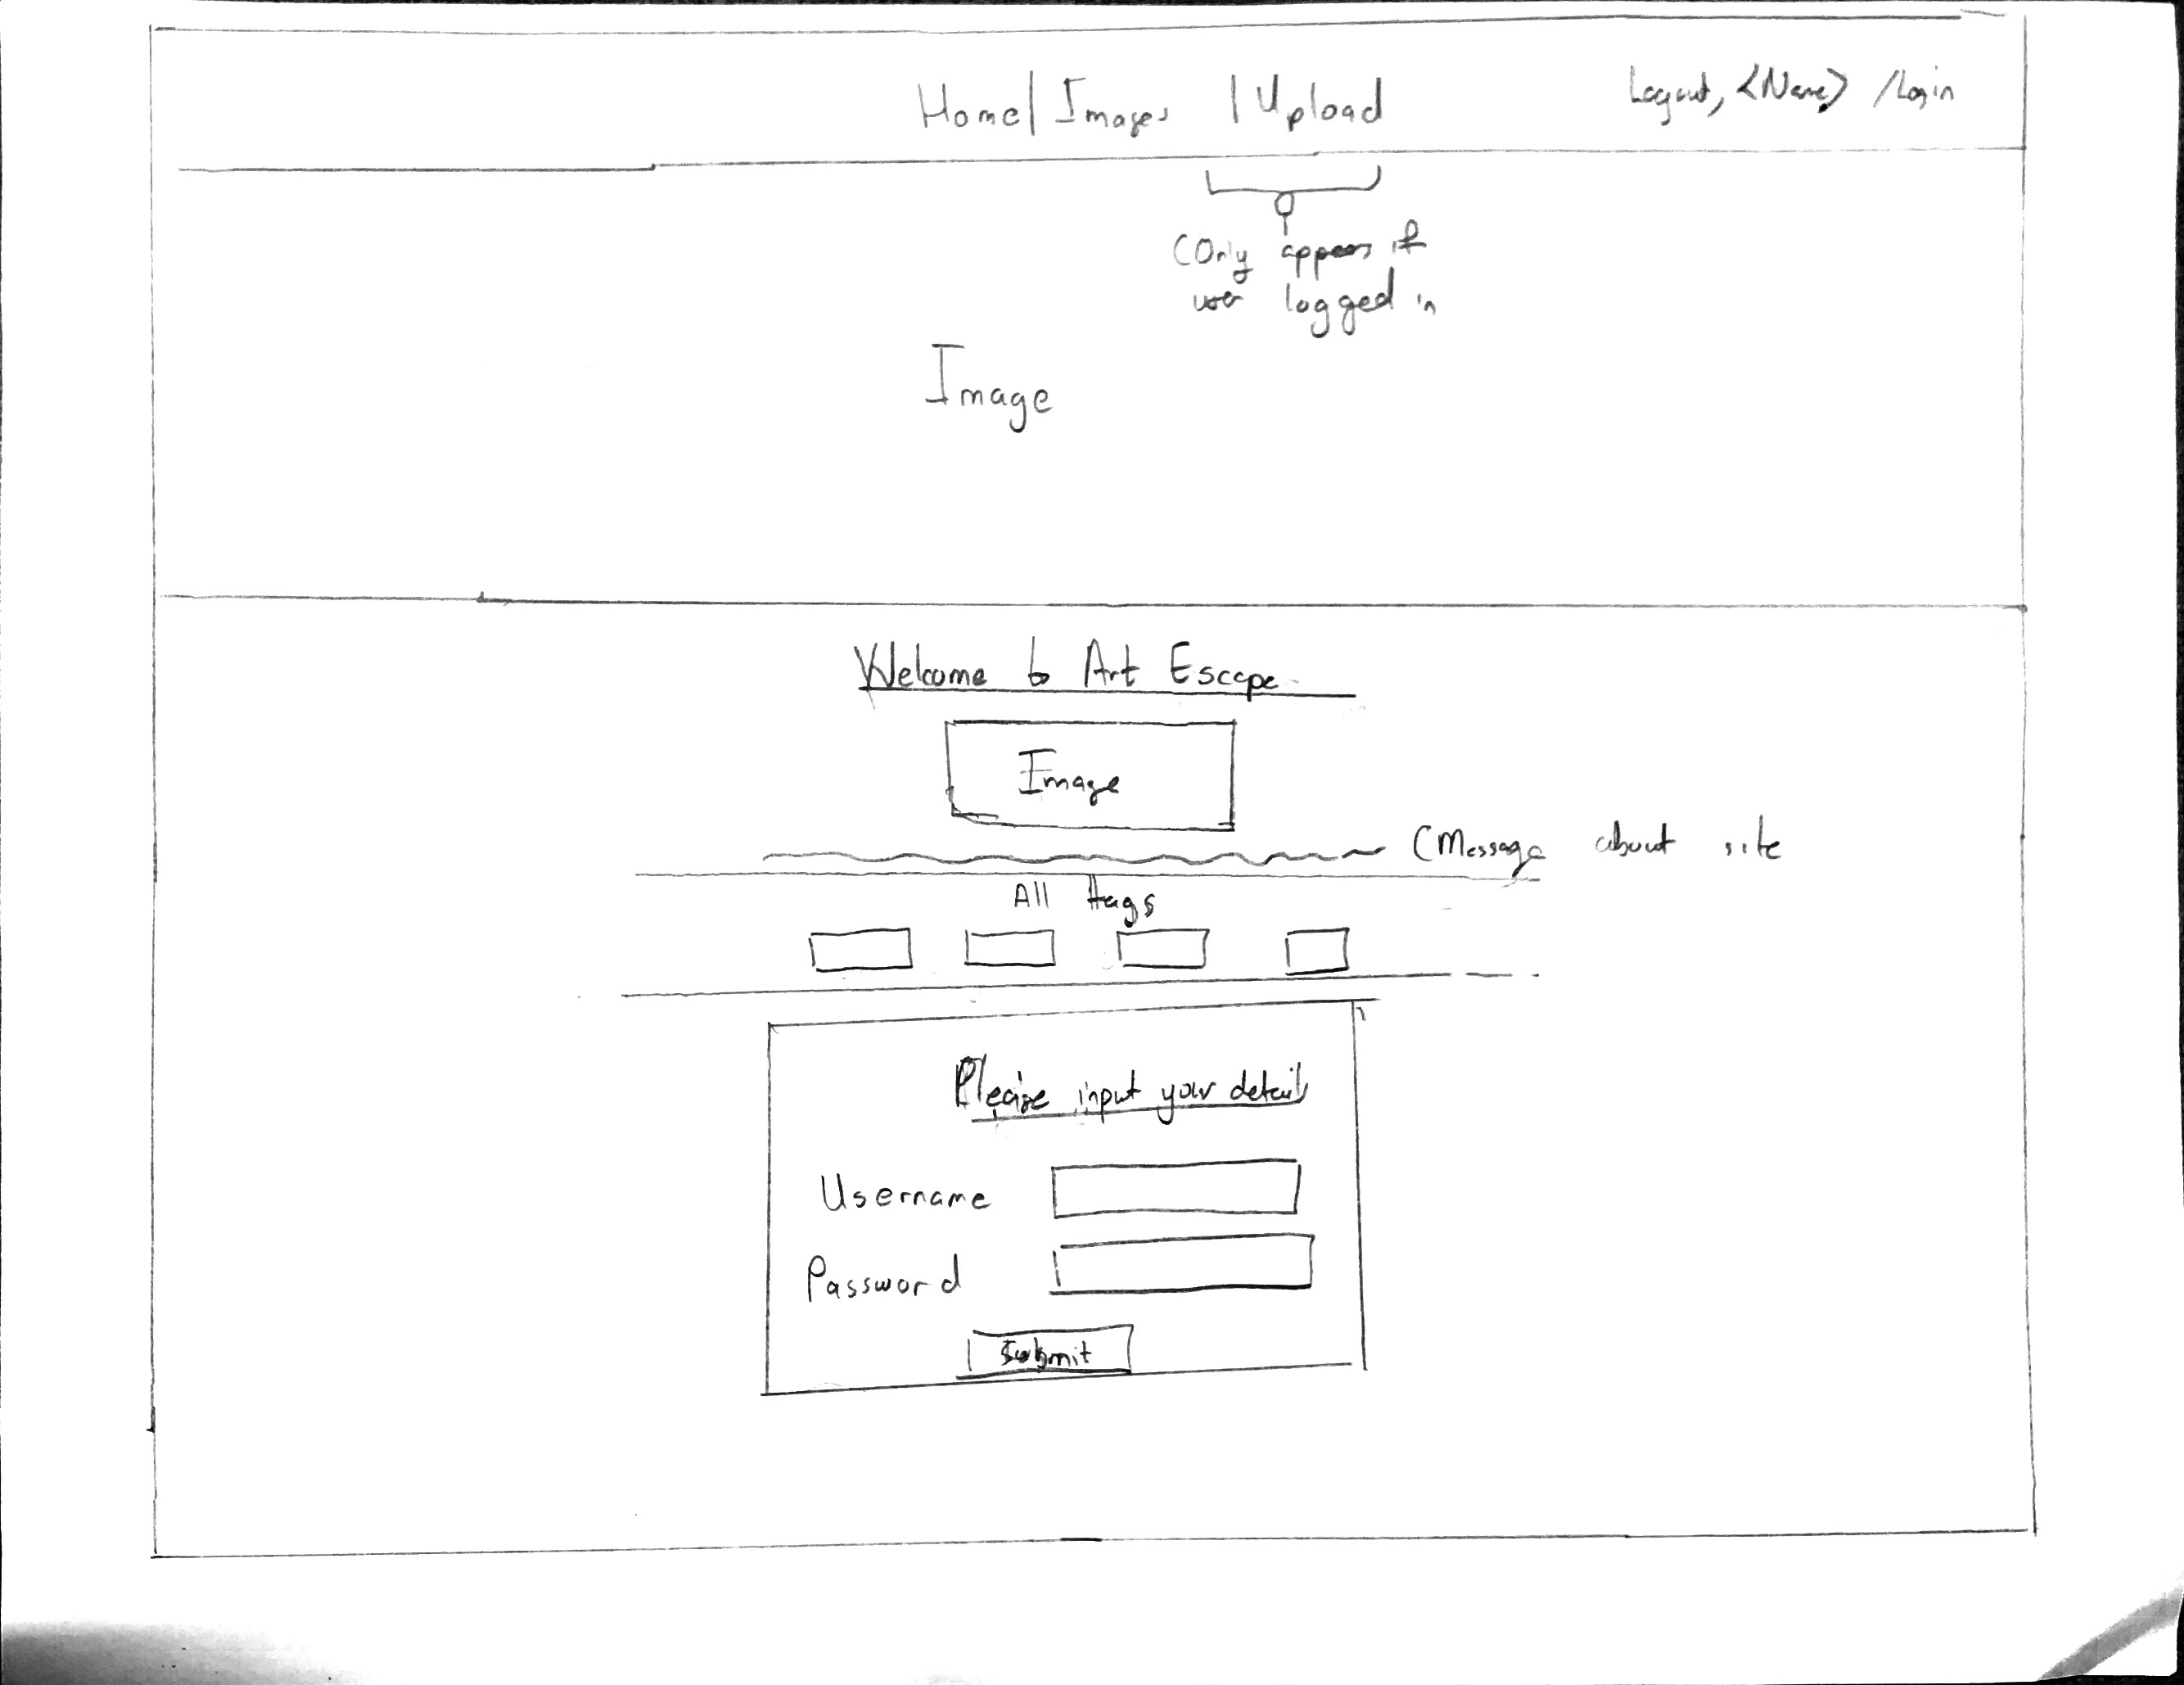 Home | Images | Upload
Logout, <Name> / Login
(Only appears if
user logged in
Image
Welcome to Art Escape
Image
(Message about site
All tags
Please input your details
Username
Password
Submit